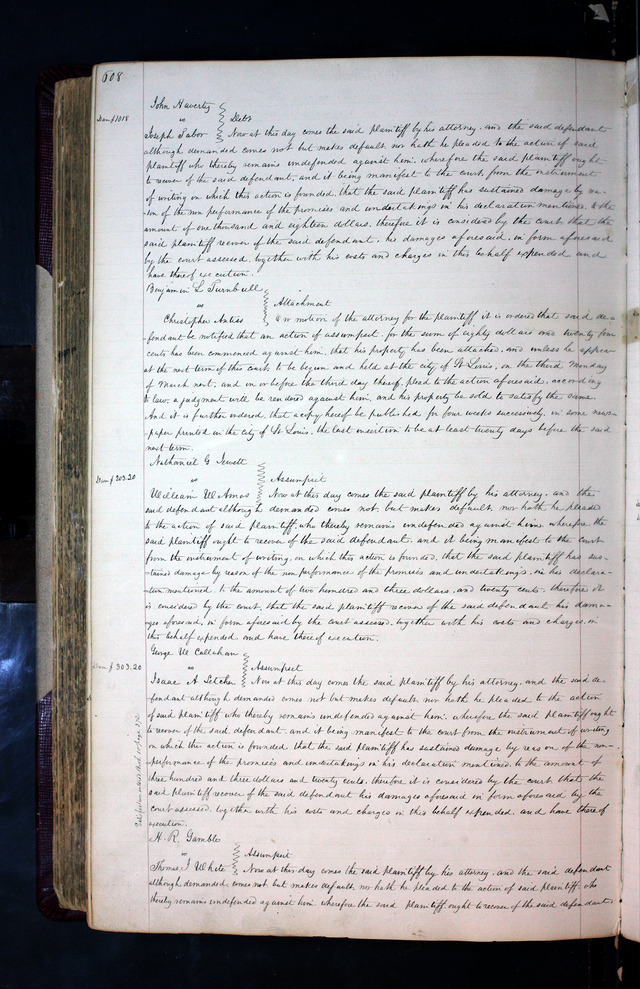 608
John Haverty
vs
Dam $1018 Debt
Joseph Tabor Now at this day comes the said plaintiff by his attorney, and the said defendant
although demanded comes not but makes default, nor hath he pleaded to the action of said
plaintiff who thereby remains undefended against him. wherefore the said plaintiff ought
to recover of the said defendant, and it being manifest to the court, from the instrument
of writing on which this action is founded, that the said plaintiff has sustained damage by rea-
-son of the non performance of the promises and undertakings in his declaration mentioned, to the
amount of one thousand and eighteen dollars, therefore it is considered by the court that the
said plaintiff recover of the said defendant, his damages aforesaid, in form aforesaid
by the court assessed, together with his costs and charges in this behalf expended and
have thereof execution.
Benjamin L Turnbull
vs
Attachment
Christopher On motion of the attorney for the plaintiff it is ordered that said de-
fendant be notified that an action of assumpsit, for the sum of eighty dollars and twenty four
cents has been commenced against him, that his property has been attached, and unless he appear
at the next term of this court, to be begun and held at the city of St Louis, on the third Monday
of March next, and in or before the third day thereof, plead to the action aforesaid, according
to law, a judgment will be rendered against him, and his property be sold to satisfy the same.
And it is further ordered, that a copy hereof be published for four weeks successively, in some news-
paper printed in the city of St Louis, the last insertion to be at least twenty days before the said
next term.
Nathaniel G Jewett
Dam $203.20 vs Assumpsit
William W Amos Now at this day comes the said plaintiff by his attorney, and the
said defendant although demanded comes not, but makes default, nor hath he pleaded
to the action of said plaintiff, who thereby remains undefended against him wherefore the
said plaintiff ought to recover of the said defendant, and it being manifest to the court
from the instrument of writing, on which this action is founded, that the said plaintiff has sus-
tained damage by reason of the non performance of the promises and undertakings, in his declara-
tion mentioned, to the amount of two hundred and three dollars, and twenty cents, therefore it
is considered by the court, that the said plaintiff recover of the said defendant his dama-
ges aforesaid, in form aforesaid by the court assessed, together with his costs and charges, in
this behalf expended, and have thereof execution.
George W Callahan
Dam $303.20 vs Assumpsit
Isaac A Letcher Now at this day comes the said plaintiff by his attorney, and the said de-
fendant although demanded comes not but makes default, nor hath he pleaded to the action
of said plaintiff who thereby remains undefended against him. wherefore the said plaintiff ought
to recover of the said defendant, and it being manifest to the court from the instrument of writing
on which the action is founded that the said plaintiff has sustained damage by reason of the non-
performance of the promises and undertakings in his declaration mentioned, to the amount of
three hundred and three dollars and twenty cents, therefore it is considered by the court, that the
said plaintiff recover of the said defendant his damages aforesaid in form aforesaid by the
court assessed, together with his costs and charges in this behalf expended, and have thereof
execution.
H. R. Gamble
vs
Assumpsit
Thomas J White Now at this day comes the said plaintiff by his attorney, and the said defendant
although demanded comes not but makes default, nor hath he pleaded to the action of said plaintiff, who
thereby remains undefended against him wherefore the said plaintiff ought to recover of the said defendant